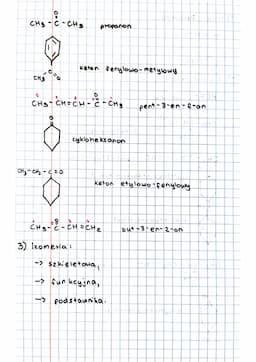 O
CH₃ - C - CH₃ propanon
keton fenylowo-metylowy
CH₃ C O
O
CH₃ - CH=CH - C - CH₃ pent-3-en-2-on
O
cykloheksanon
CH₃-CH₂-C=O
keton etylowo-fenylowy
O
CH₃ - C - CH=CH₂ but-3-en-2-on
3) Izomeria:
-> szkieletowa,
-> funkcyjna,
-> podstawnika.